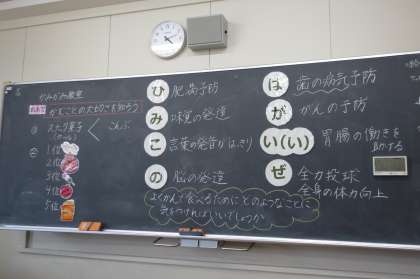 かみかみ教室
めあて かむことの大切さを知ろう
スナック菓子
こんぶ
1位
2位
3位
4位
5位
ひ 肥満予防
み 味覚の発達
こ 言葉の発音がはっきり
の 脳の発達
は 歯の病気予防
が がんの予防
い(い) 胃腸の働きを
助ける
ぜ 全力投球
全身の体力向上
よくかんで食べるためにどのようなことに
気をつければよいでしょうか